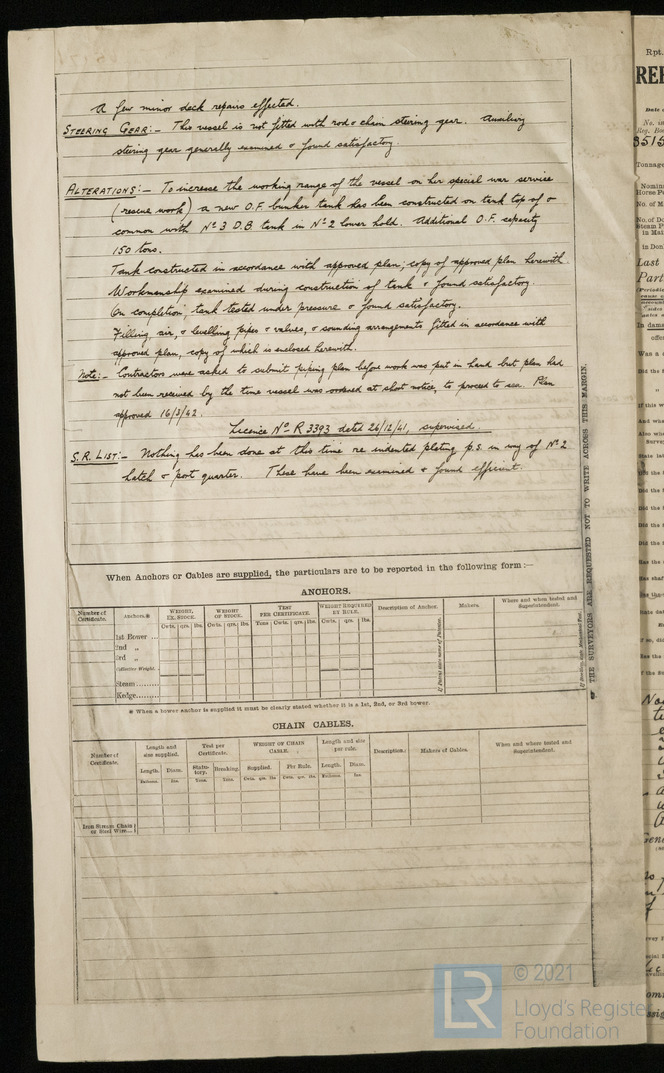 A few minor deck repairs effected.
STEERING GEAR:- This vessel is not fitted with rod & chain steering gear. Auxiliary
steering gear generally examined & found satisfactory.
ALTERATIONS:- To increase the working range of the vessel on her special war service
(rescue work) a new O.F. bunker tank has been constructed on tank top of &
common with Nº 3 D.B. tank in Nº 2 lower hold. Additional O.F. capacity
150 tons.
Tank constructed in accordance with approved plan; copy of approved plan herewith.
Workmanship examined during construction of tank & found satisfactory.
On completion, tank tested under pressure & found satisfactory.
Filling, air, & levelling pipes & valves, & sounding arrangements fitted in accordance with
approved plan, copy of which is enclosed herewith.
Note:- Contractors were asked to submit piping plan before work was put in hand but plan had
not been received by the time vessel was ordered at short notice, to proceed to sea. Plan
approved 16/3/42.
Licence Nº R 3393 dated 26/12/41, supervised.
S.R. LIST:- Nothing has been done at this time re indented plating p.s. in way of Nº 2
hatch & port quarter. These have been examined & found efficient.
THE SURVEYORS ARE REQUESTED NOT TO WRITE ACROSS THIS MARGIN.
When Anchors or Cables are supplied, the particulars are to be reported in the following form :—
ANCHORS.
Number of Certificate. Anchors.* WEIGHT, EX. STOCK. WEIGHT OF STOCK. TEST PER CERTIFICATE. WEIGHT REQUIRED BY RULE. Description of Anchor. Makers. Where and when tested and Superintendent.
Cwts. qrs. lbs. Cwts. qrs. lbs. Tons Cwts. qrs. lbs. Cwts. qrs. lbs.
1st Bower ...
2nd „
3rd „
Collective Weight.
Stream.........
Kedge.........
* When a bower anchor is supplied it must be clearly stated whether it is a 1st, 2nd, or 3rd bower.
CHAIN CABLES.
Number of Certificate. Length and size supplied. Test per Certificate. WEIGHT OF CHAIN CABLE. Length and size per rule. Description. Makers of Cables. When and where tested and Superintendent.
Length. Diam. Statutory. Breaking. Supplied. Per Rule. Length. Diam.
Fathoms. Ins. Tons. Tons. Cwts. qrs. lbs. Cwts. qrs. lbs. Fathoms. Ins.
Iron Stream Chain
or Steel Wire...
Rpt.
LR
© 2021
Lloyd's Register
Foundation